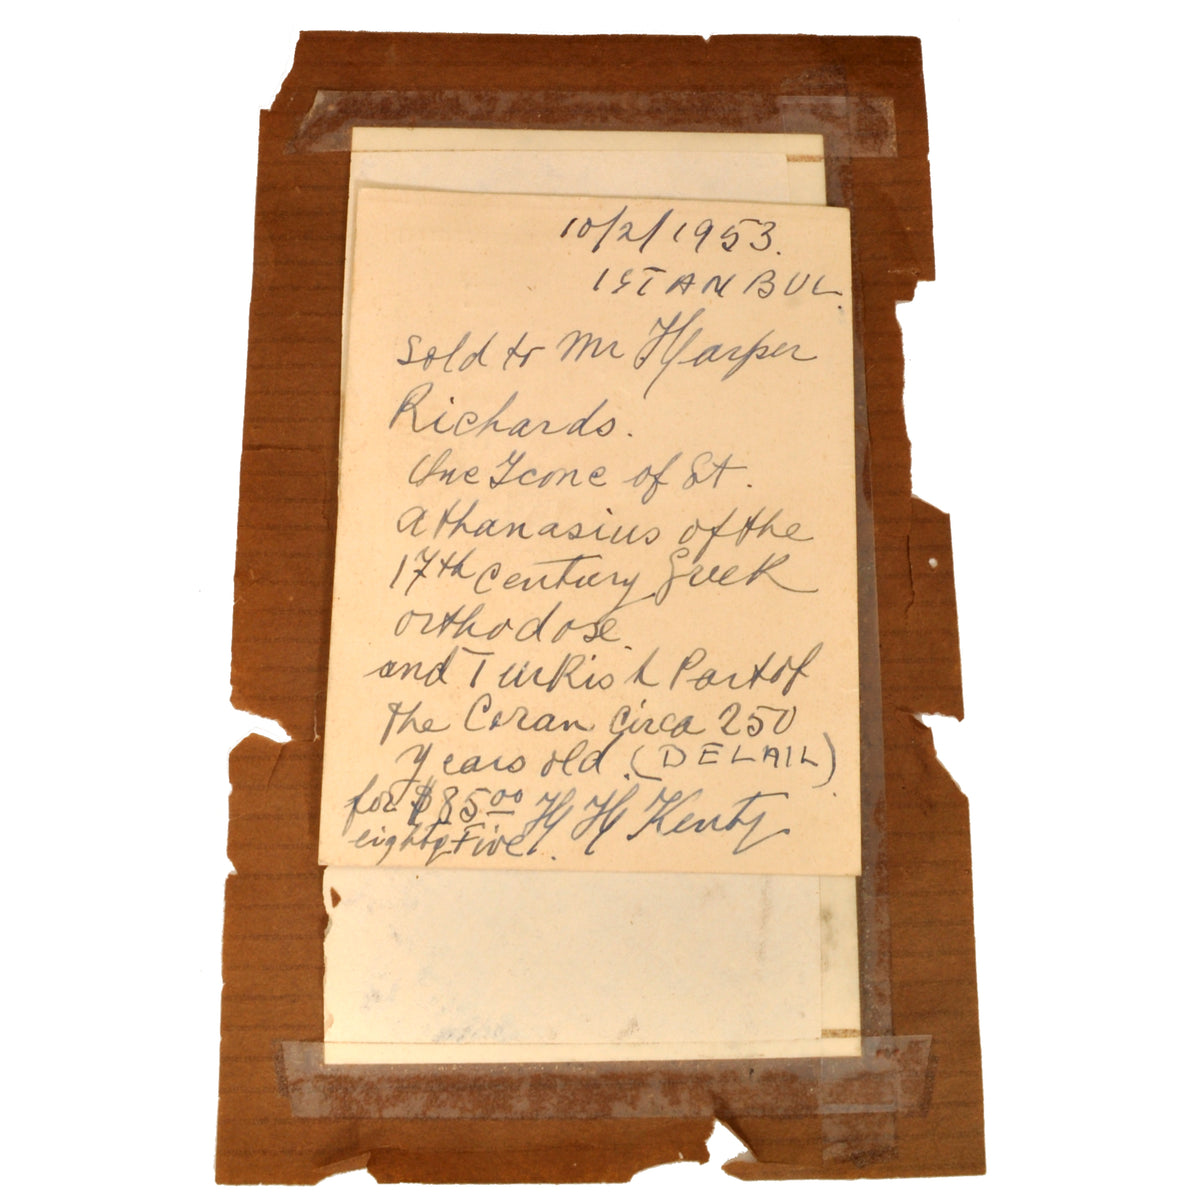 10/2/1953.
ISTANBUL.
Sold to Mr Harper
Richards.
One Icone of St.
Athanasius of the
17th century Greek
orthodose.
and Turkish Part of
the Coran circa 250
years old. (DELAIL)
for $85.00 H H Kenty
eighty Five.